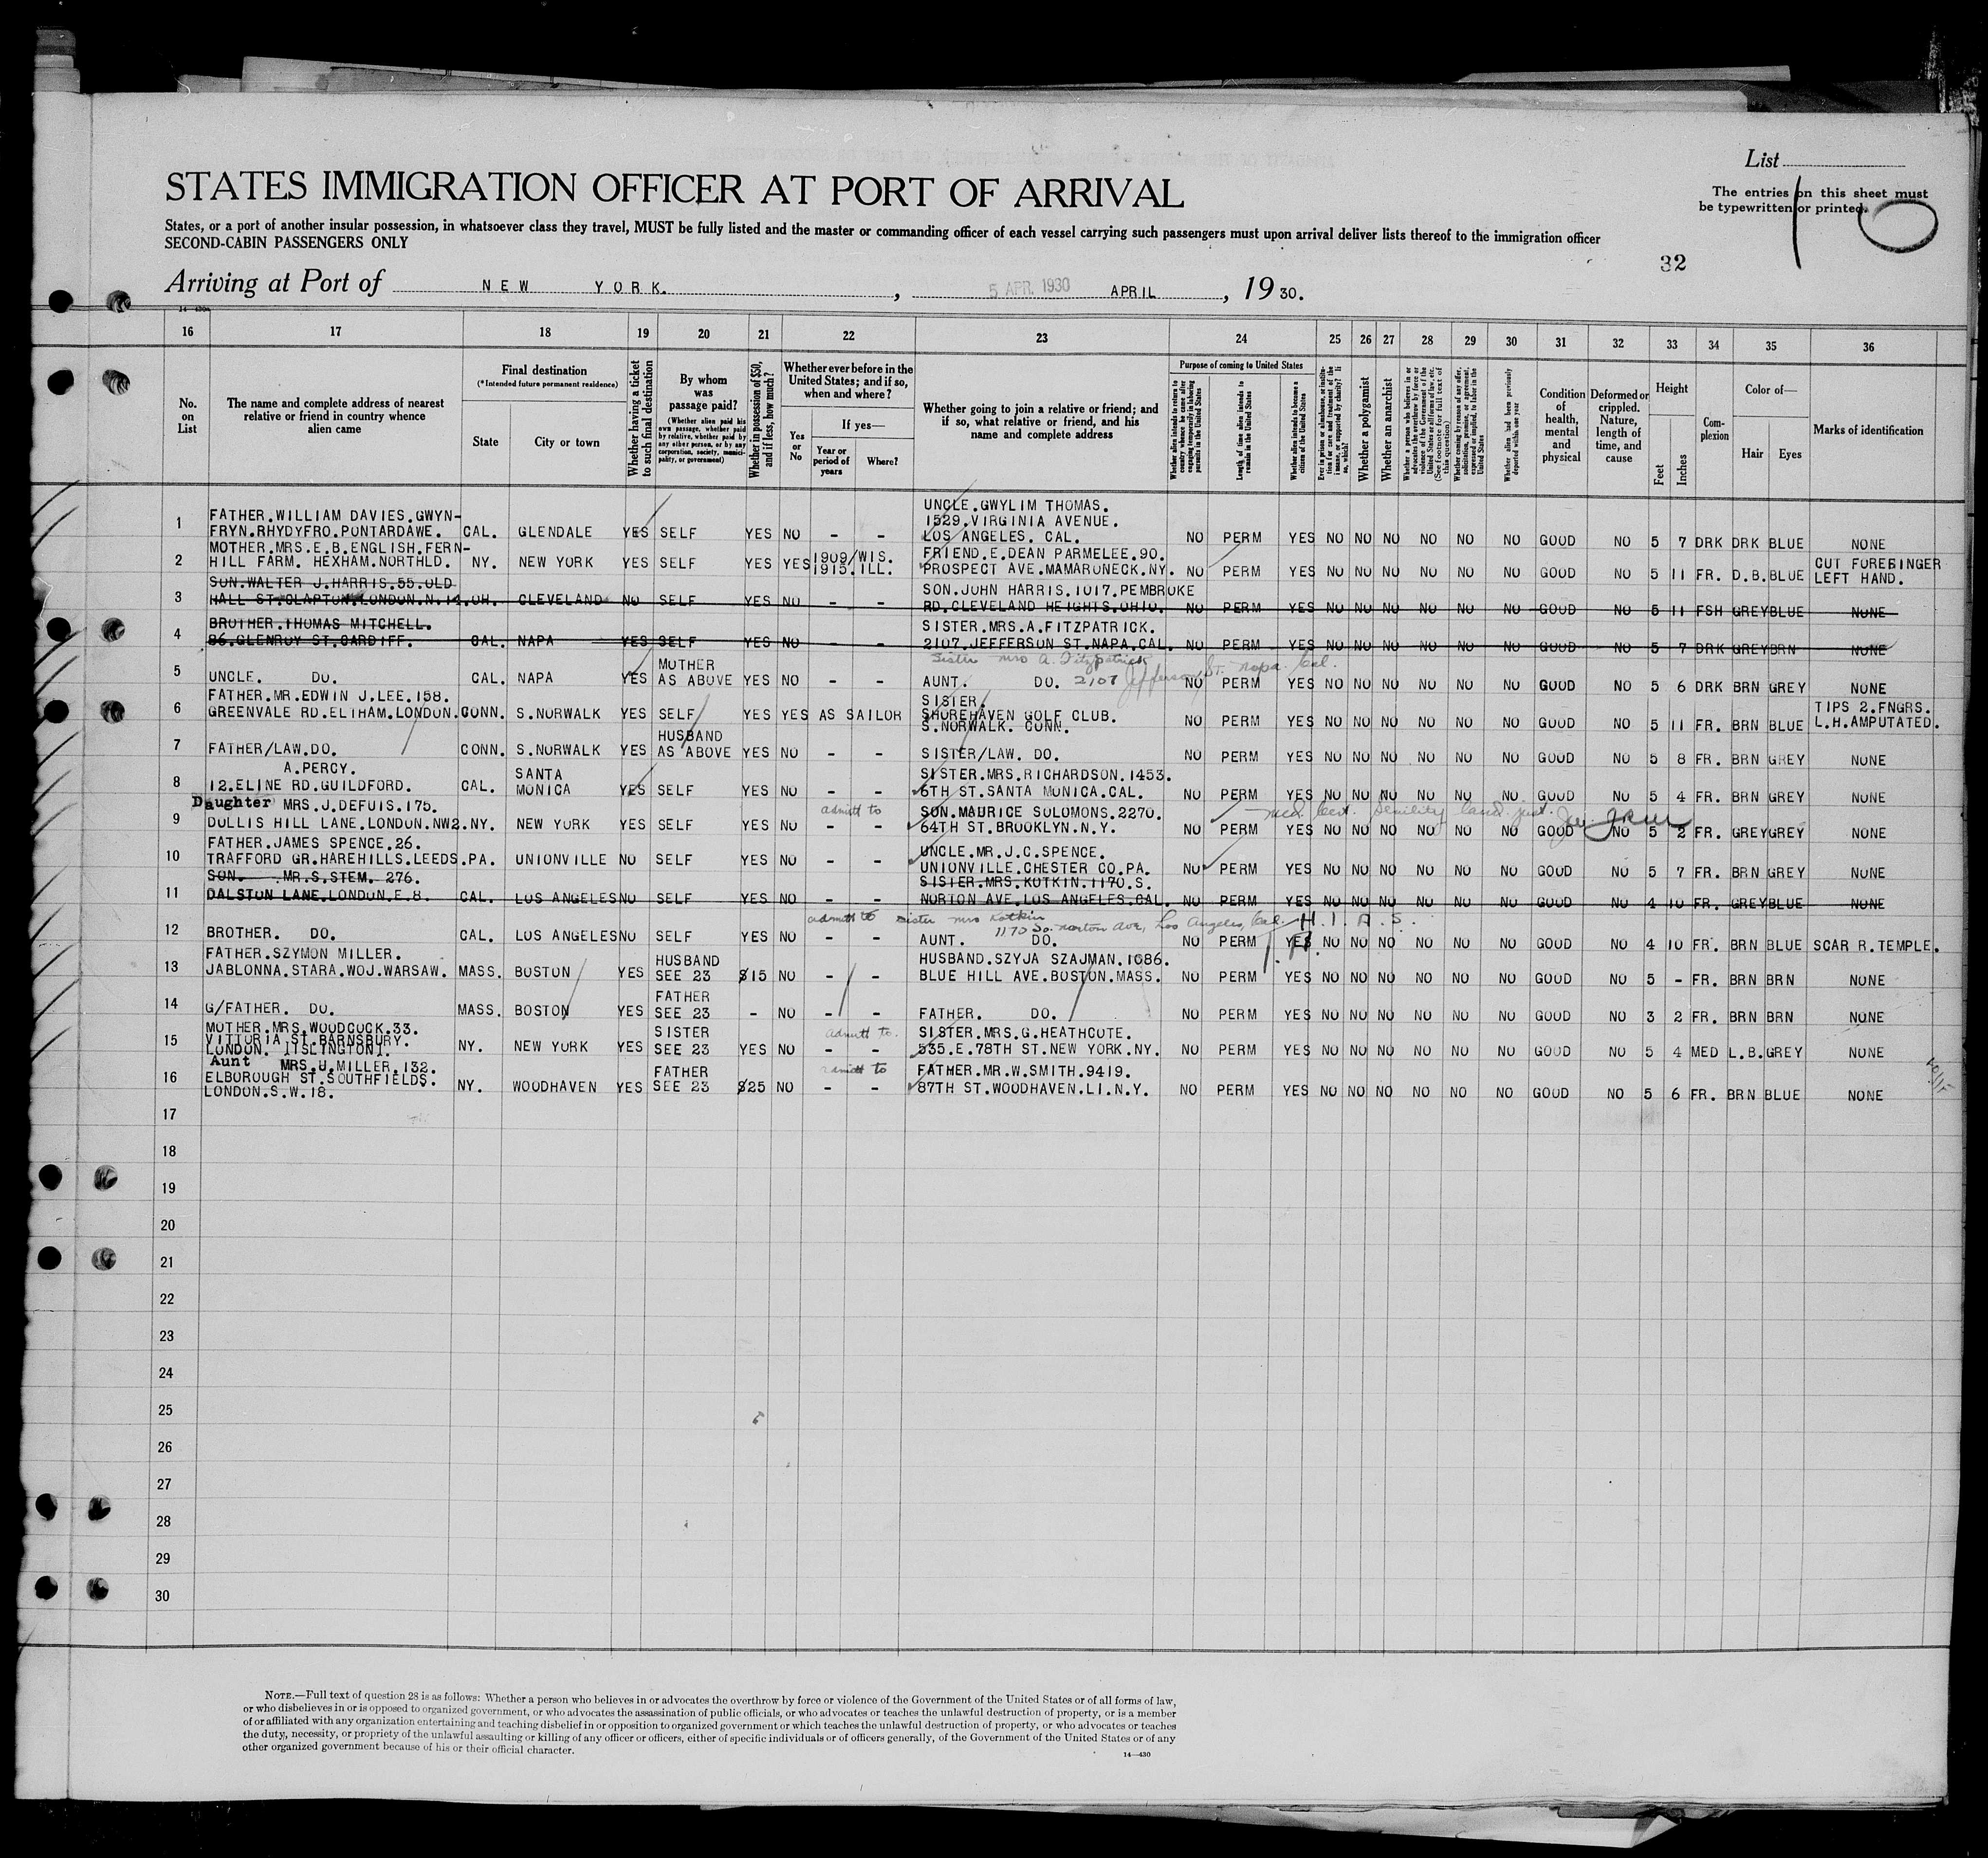 List
The entries on this sheet must
be typewritten or printed.
STATES IMMIGRATION OFFICER AT PORT OF ARRIVAL
States, or a port of another insular possession, in whatsoever class they travel, MUST be fully listed and the master or commanding officer of each vessel carrying such passengers must upon arrival deliver lists thereof to the immigration officer
SECOND-CABIN PASSENGERS ONLY
32
Arriving at Port of NEW YORK. , 5 APR. 1930 APRIL , 19 30.
16 17 18 19 20 21 22 23 24 25 26 27 28 29 30 31 32 33 34 35 36
No. on List
The name and complete address of nearest relative or friend in country whence alien came
Final destination
(*Intended future permanent residence)
State
City or town
Whether having a ticket to such final destination
By whom was passage paid?
(Whether alien paid his own passage, whether paid by relative, whether paid by any other person, or by any corporation, society, municipality, or government)
Whether in possession of $50, and if less, how much?
Whether ever before in the United States; and if so, when and where?
Yes or No
If yes—
Year or period of years
Where?
Whether going to join a relative or friend; and if so, what relative or friend, and his name and complete address
Purpose of coming to United States
Length of time alien intends to remain in the United States
Whether alien intends to become a citizen of the United States
Whether a polygamist
Whether an anarchist
Condition of health, mental and physical
Deformed or crippled. Nature, length of time, and cause
Height
Feet
Inches
Complexion
Color of—
Hair
Eyes
Marks of identification
1 FATHER.WILLIAM DAVIES.GWYN-
FRYN.RHYDYFRO.PONTARDAWE. CAL. GLENDALE YES SELF YES NO - - UNCLE.GWYLIM THOMAS.
1529.VIRGINIA AVENUE.
LOS ANGELES. CAL. NO PERM YES NO NO NO NO NO NO GOOD NO 5 7 DRK DRK BLUE NONE
2 MOTHER.MRS.E.B.ENGLISH.FERN-
HILL FARM. HEXHAM.NORTHLD. NY. NEW YORK YES SELF YES YES 1909/WIS.
1915.ILL. FRIEND.E.DEAN PARMELEE.90.
PROSPECT AVE.MAMARONECK.NY. NO PERM YES NO NO NO NO NO NO GOOD NO 5 11 FR. D.B.BLUE CUT FOREBINGER
LEFT HAND.
3 SON.WALTER J.HARRIS.55.OLD
HALL ST.CLAPTON.LONDON.N.14. OH. CLEVELAND NO SELF YES NO - - SON.JOHN HARRIS.1017.PEMBROKE
RD.CLEVELAND HEIGHTS.OHIO. NO PERM YES NO NO NO NO NO NO GOOD NO 5 11 FSH GREY BLUE NONE
4 BROTHER.THOMAS MITCHELL.
86.GLENROY ST.CARDIFF. CAL. NAPA YES SELF YES NO - - SISTER.MRS.A.FITZPATRICK.
2107.JEFFERSON ST.NAPA.CAL. NO PERM YES NO NO NO NO NO NO GOOD NO 5 7 DRK GREY BRN NONE
Sister Mrs A. Fitzpatrick
2107 Jefferson St. Napa. Cal.
5 UNCLE. DO. CAL. NAPA YES MOTHER
AS ABOVE YES NO - - AUNT. DO. NO PERM YES NO NO NO NO NO NO GOOD NO 5 6 DRK BRN GREY NONE
6 FATHER.MR.EDWIN J.LEE.158.
GREENVALE RD.ELTHAM.LONDON. CONN. S.NORWALK YES SELF YES YES AS SAILOR SISTER.
SHOREHAVEN GOLF CLUB.
S.NORWALK. CONN. NO PERM YES NO NO NO NO NO NO GOOD NO 5 11 FR. BRN BLUE TIPS 2.FNGRS.
L.H.AMPUTATED.
7 FATHER/LAW.DO. CONN. S.NORWALK YES HUSBAND
AS ABOVE YES NO - - SISTER/LAW. DO. NO PERM YES NO NO NO NO NO NO GOOD NO 5 8 FR. BRN GREY NONE
8 A.PERCY.
12.ELINE RD.GUILDFORD. CAL. SANTA
MONICA YES SELF YES NO - - SISTER.MRS.RICHARDSON.1453.
6TH ST.SANTA MONICA.CAL. NO PERM YES NO NO NO NO NO NO GOOD NO 5 4 FR. BRN GREY NONE
9 Daughter MRS.J.DEFUIS.175.
DOLLIS HILL LANE.LONDON.NW2. NY. NEW YORK YES SELF YES NO admitt to - - SON.MAURICE SOLOMONS.2270.
64TH ST.BROOKLYN.N.Y. NO PERM YES NO NO NO NO NO NO GOOD NO 5 2 FR. GREY GREY NONE
med. cert. Senility
10 FATHER.JAMES SPENCE.26.
TRAFFORD GR.HAREHILLS.LEEDS. PA. UNIONVILLE NO SELF YES NO - - UNCLE.MR.J.C.SPENCE.
UNIONVILLE.CHESTER CO.PA. NO PERM YES NO NO NO NO NO NO GOOD NO 5 7 FR. BRN GREY NONE
11 SON. MR.S.STEM. 276.
DALSTON LANE.LONDON.E.8. CAL. LOS ANGELES NO SELF YES NO - - SISTER.MRS.KOTKIN.1170.S.
NORTON AVE.LOS ANGELES.CAL. NO PERM YES NO NO NO NO NO NO GOOD NO 4 10 FR. GREY BLUE NONE
admitt to sister Mrs Kotkin
1170 So. Norton Ave, Los Angeles, Cal. H.I.A.S.
12 BROTHER. DO. CAL. LOS ANGELES NO SELF YES NO - - AUNT. DO. NO PERM YES NO NO NO NO NO NO GOOD NO 4 10 FR. BRN BLUE SCAR R.TEMPLE.
13 FATHER.SZYMON MILLER.
JABLONNA.STARA.WOJ.WARSAW. MASS. BOSTON YES HUSBAND
SEE 23 $15 NO - - HUSBAND.SZYJA SZAJMAN.1086.
BLUE HILL AVE.BOSTON.MASS. NO PERM YES NO NO NO NO NO NO GOOD NO 5 - FR. BRN BRN NONE
14 G/FATHER. DO. MASS. BOSTON YES FATHER
SEE 23 - NO - - FATHER. DO. NO PERM YES NO NO NO NO NO NO GOOD NO 3 2 FR. BRN BRN NONE
15 MOTHER.MRS.WOODCOCK.33.
VITTORIA ST.BARNSBURY.
LONDON. (ISLINGTON). NY. NEW YORK YES SISTER
SEE 23 YES NO admitt to. - - SISTER.MRS.G.HEATHCOTE.
535.E.78TH ST.NEW YORK.NY. NO PERM YES NO NO NO NO NO NO GOOD NO 5 4 MED L.B.GREY NONE
16 Aunt MRS.U.MILLER.132.
ELBOROUGH ST.SOUTHFIELDS.
LONDON.S.W.18. NY. WOODHAVEN YES FATHER
SEE 23 $25 NO admitt to - - FATHER.MR.W.SMITH.9419.
87TH ST.WOODHAVEN.LI.N.Y. NO PERM YES NO NO NO NO NO NO GOOD NO 5 6 FR. BRN BLUE NONE
17
18
19
20
21
22
23
24
25
26
27
28
29
30
NOTE.—Full text of question 28 is as follows: Whether a person who believes in or advocates the overthrow by force or violence of the Government of the United States or of all forms of law,
or who disbelieves in or is opposed to organized government, or who advocates the assassination of public officials, or who advocates or teaches the unlawful destruction of property, or is a member
of or affiliated with any organization entertaining and teaching disbelief in or opposition to organized government or which teaches the unlawful destruction of property, or who advocates or teaches
the duty, necessity, or propriety of the unlawful assaulting or killing of any officer or officers, either of specific individuals or of officers generally, of the Government of the United States or of any
other organized government because of his or their official character.
14—430